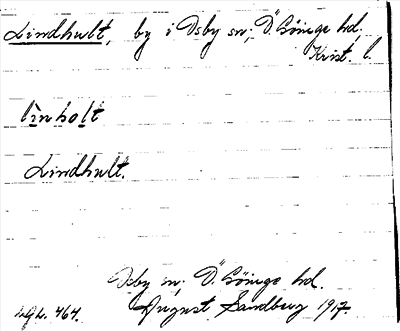 Lindhult, by i Osby sn; Ö. Göinge hd,
Krist. l.
lìnholt
Lindhult.
Osby sn; Ö. Göinge hd.
August Sandberg 1917.
464.